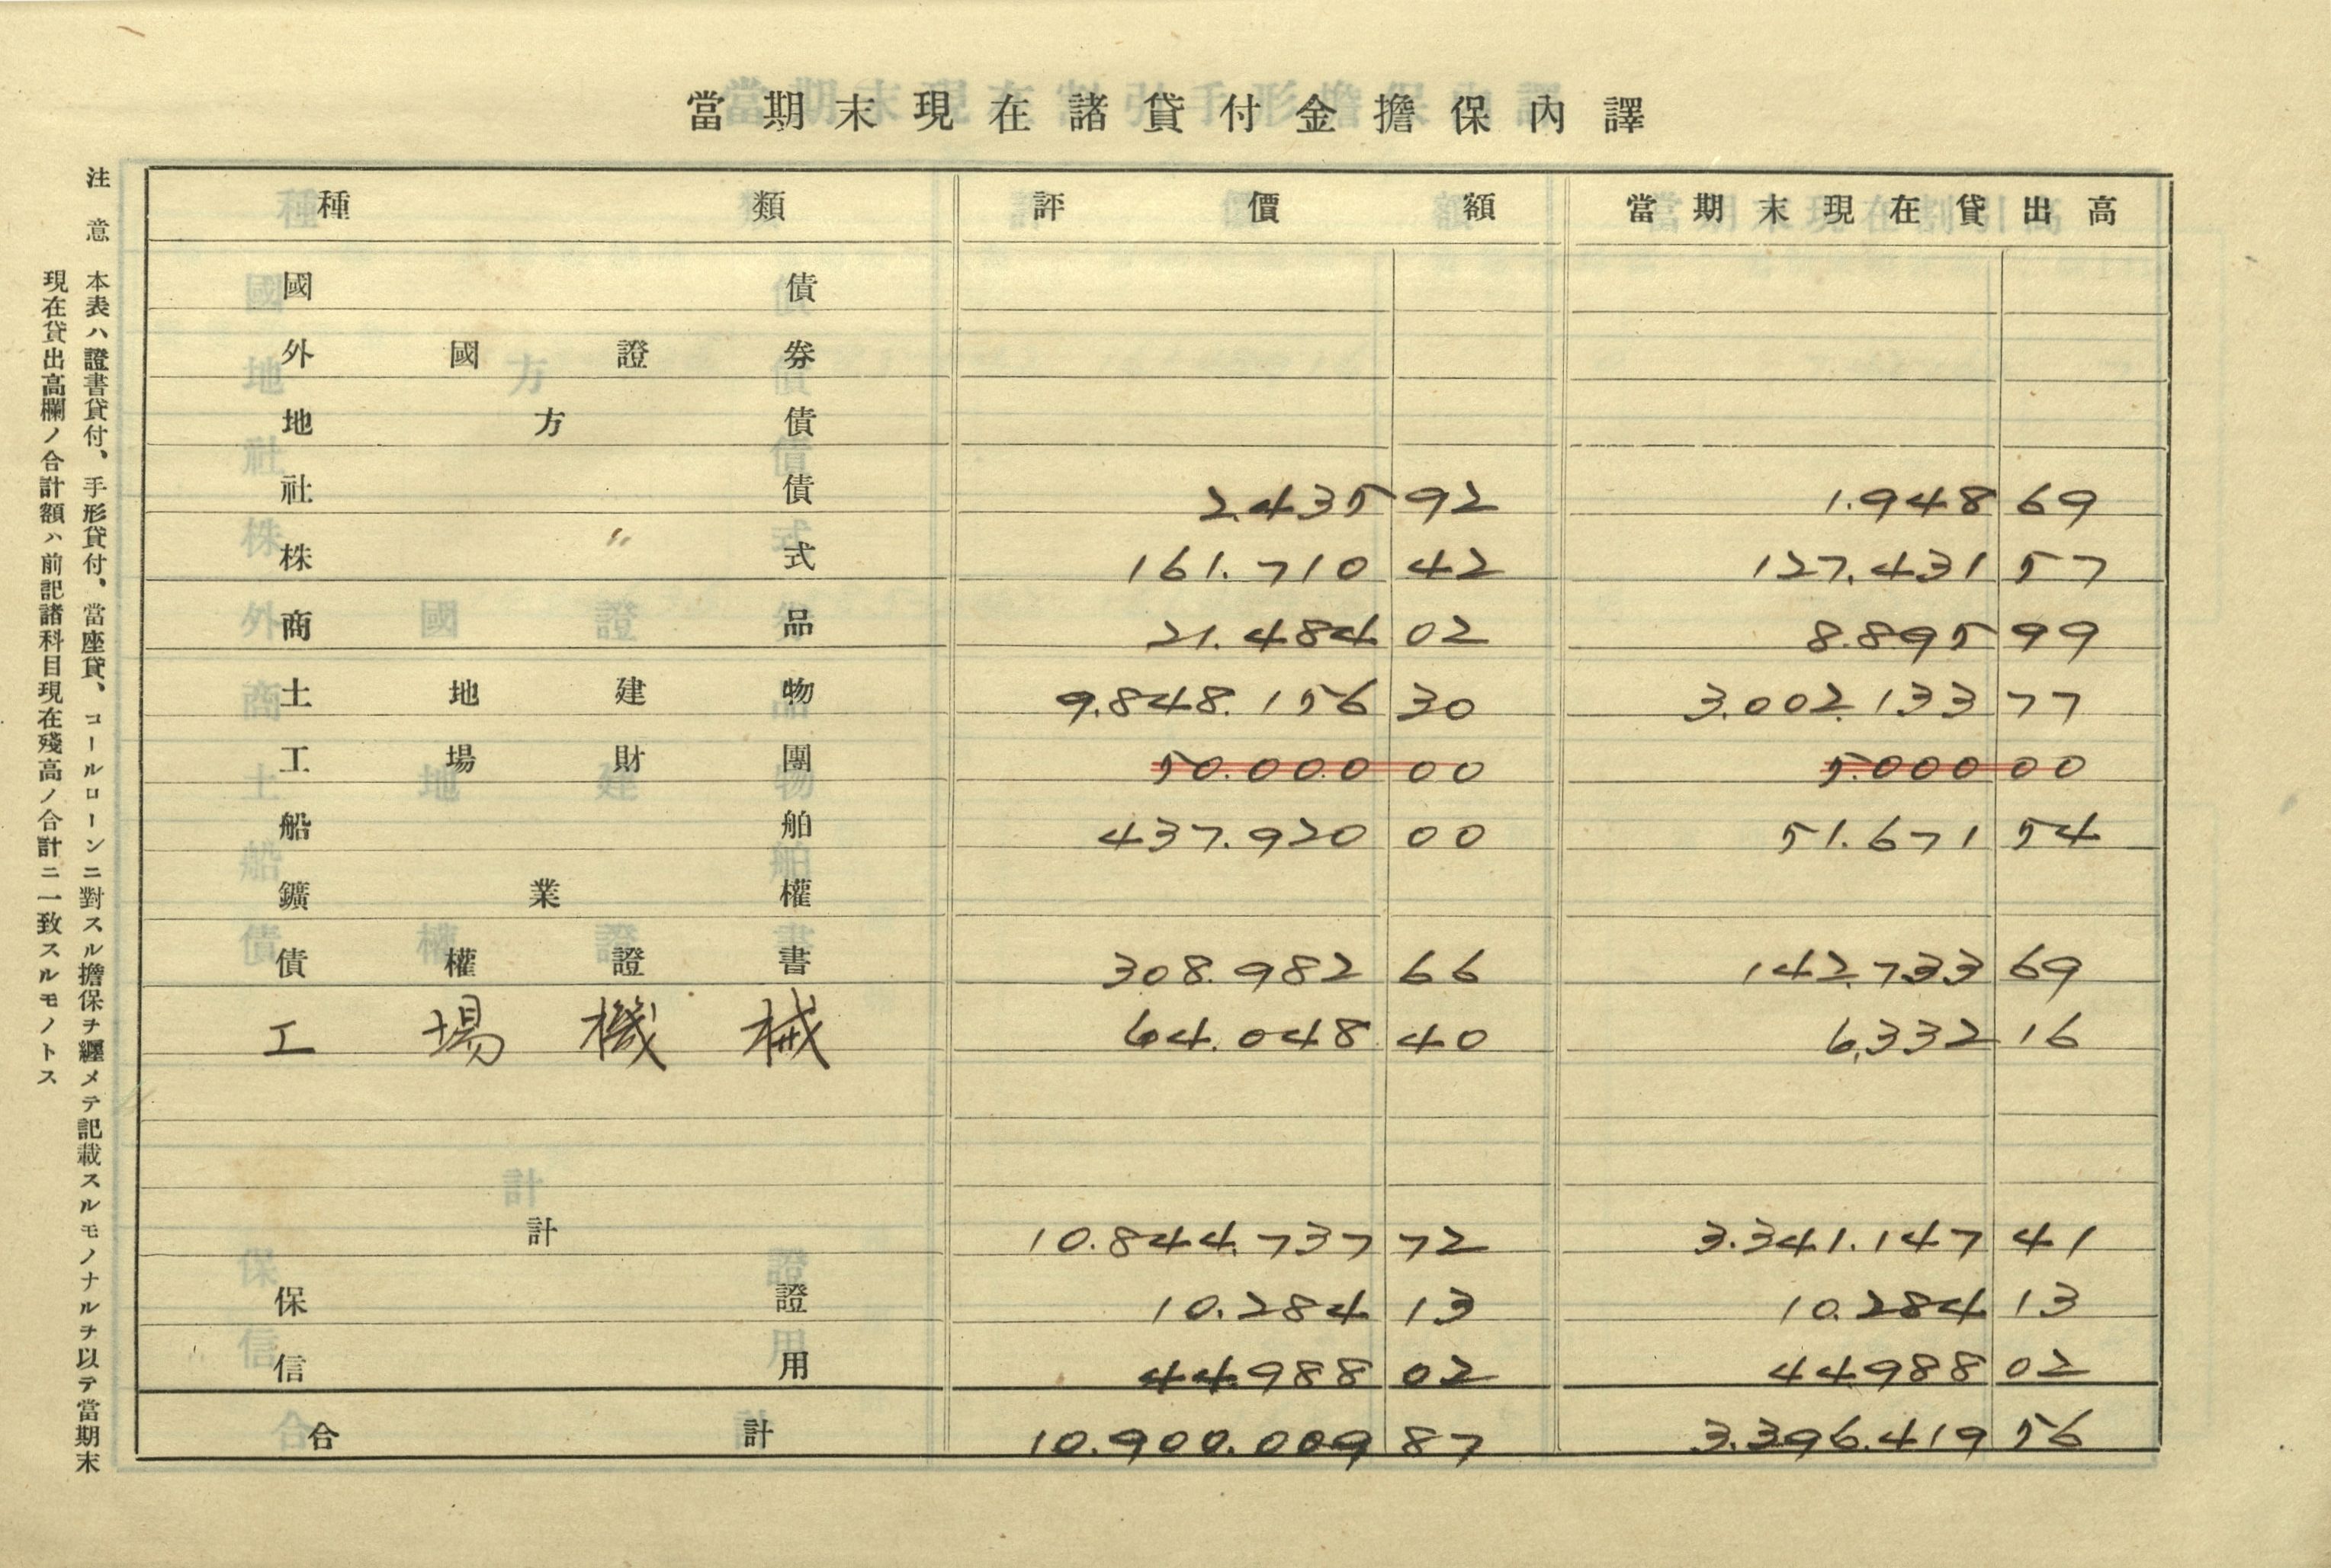 當期末現在諸貸付金擔保內譯
種類 評價額 當期末現在貸出高
國債
外國證券
地方債
社債 2.435 92 1.948 69
株式 〃 161.710 42 127.431 57
商品 21.484 02 8.895 99
土地建物 9.848.156 30 3.002.133 77
工場財團 50.000 00 5.000 00
船舶 437.920 00 51.671 54
鑛業權
債權證書 308.982 66 142.733 69
工場機械 64.048 40 6,332 16
計 10.844.737 72 3.341.147 41
保證 10.284 13 10.284 13
信用 44.988 02 44.988 02
合計 10.900.009 87 3.396.419 56
注意 本表ハ證書貸付、手形貸付、當座貸、コールローンニ對スル擔保ヲ纒メテ記載スルモノナルヲ以テ當期末
現在貸出高欄ノ合計額ハ前記諸科目現在殘高ノ合計ニ一致スルモノトス